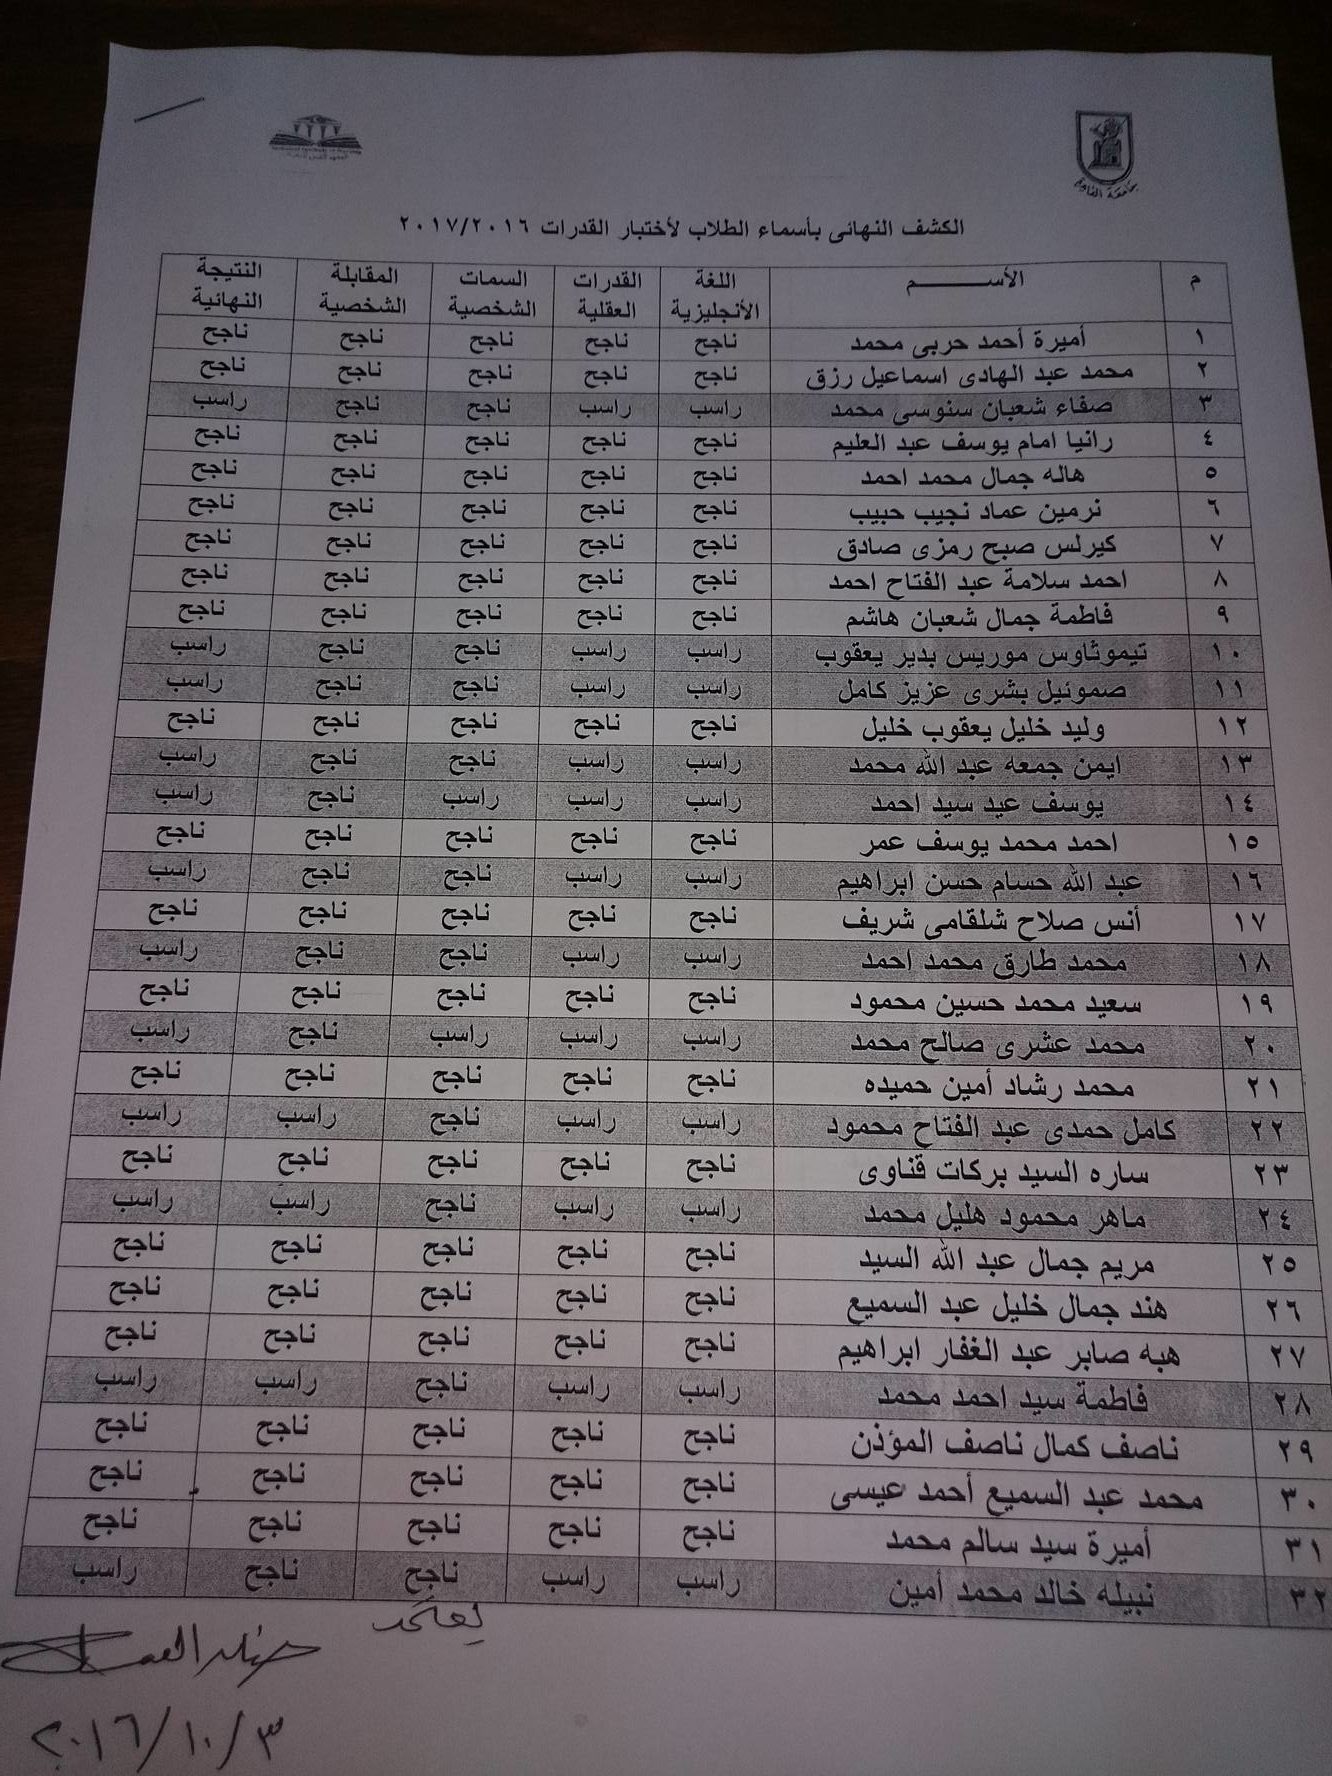 جامعة الفيوم
الكشف النهائى بأسماء الطلاب لأختبار القدرات ٢٠١٧/٢٠١٦
م الأســـــــــم اللغة الأنجليزية القدرات العقلية السمات الشخصية المقابلة الشخصية النتيجة النهائية
١ أميرة أحمد حربى محمد ناجح ناجح ناجح ناجح ناجح
٢ محمد عبد الهادى اسماعيل رزق ناجح ناجح ناجح ناجح ناجح
٣ صفاء شعبان سنوسى محمد راسب راسب ناجح ناجح راسب
٤ رانيا امام يوسف عبد العليم ناجح ناجح ناجح ناجح ناجح
٥ هاله جمال محمد احمد ناجح ناجح ناجح ناجح ناجح
٦ نرمين عماد نجيب حبيب ناجح ناجح ناجح ناجح ناجح
٧ كيرلس صبح رمزى صادق ناجح ناجح ناجح ناجح ناجح
٨ احمد سلامة عبد الفتاح احمد ناجح ناجح ناجح ناجح ناجح
٩ فاطمة جمال شعبان هاشم ناجح ناجح ناجح ناجح ناجح
١٠ تيموثاوس موريس بدير يعقوب راسب راسب ناجح ناجح راسب
١١ صموئيل بشرى عزيز كامل راسب راسب ناجح ناجح راسب
١٢ وليد خليل يعقوب خليل ناجح ناجح ناجح ناجح ناجح
١٣ ايمن جمعه عبد الله محمد راسب راسب ناجح ناجح راسب
١٤ يوسف عيد سيد احمد راسب راسب راسب ناجح راسب
١٥ احمد محمد يوسف عمر ناجح ناجح ناجح ناجح ناجح
١٦ عبد الله حسام حسن ابراهيم راسب راسب ناجح ناجح راسب
١٧ أنس صلاح شلقامى شريف ناجح ناجح ناجح ناجح ناجح
١٨ محمد طارق محمد احمد راسب راسب ناجح ناجح راسب
١٩ سعيد محمد حسين محمود ناجح ناجح ناجح ناجح ناجح
٢٠ محمد عشرى صالح محمد راسب راسب راسب ناجح راسب
٢١ محمد رشاد أمين حميده ناجح ناجح ناجح ناجح ناجح
٢٢ كامل حمدى عبد الفتاح محمود راسب راسب ناجح راسب راسب
٢٣ ساره السيد بركات قناوى ناجح ناجح ناجح ناجح ناجح
٢٤ ماهر محمود هليل محمد راسب راسب ناجح راسب راسب
٢٥ مريم جمال عبد الله السيد ناجح ناجح ناجح ناجح ناجح
٢٦ هند جمال خليل عبد السميع ناجح ناجح ناجح ناجح ناجح
٢٧ هبه صابر عبد الغفار ابراهيم ناجح ناجح ناجح ناجح ناجح
٢٨ فاطمة سيد احمد محمد راسب راسب ناجح راسب راسب
٢٩ ناصف كمال ناصف المؤذن ناجح ناجح ناجح ناجح ناجح
٣٠ محمد عبد السميع أحمد عيسى ناجح ناجح ناجح ناجح ناجح
٣١ أميرة سيد سالم محمد ناجح ناجح ناجح ناجح ناجح
٣٢ نبيله خالد محمد أمين راسب راسب ناجح ناجح راسب
يعتمد
٢٠١٦/١٠/٣